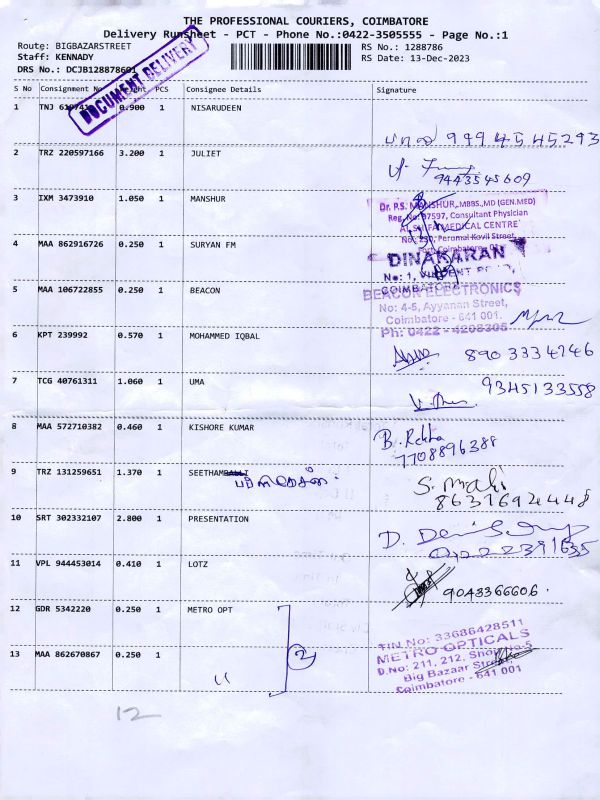 THE PROFESSIONAL COURIERS, COIMBATORE
Delivery Runsheet - PCT - Phone No.:0422-3505555 - Page No.:1
Route: BIGBAZARSTREET
RS No.: 1288786
Staff: KENNADY
RS Date: 13-Dec-2023
DRS No.: DCJB128878601
DOCUMENT DELIVERY
S No Consignment No Weight PCS Consignee Details Signature
1 TNJ 0.900 1 NISARUDEEN
பாலு 9994545293
2 TRZ 220597166 3.200 1 JULIET
9443545609
3 IXM 3473910 1.050 1 MANSHUR
Dr. P.S. MANSHUR, MBBS.,MD (GEN.MED)
Reg. No: 87597, Consultant Physician
MEDICAL CENTRE
No: 230, Perumal Kovil Street,
Coimbatore - 01
4 MAA 862916726 0.250 1 SURYAN FM
DINAKARAN
No: 1,
COIMBATORE
5 MAA 106722855 0.250 1 BEACON
BEACON ELECTRONICS
No: 4-5, Ayyanan Street,
Coimbatore - 641 001.
Ph: 0422 - 4208305
6 KPT 239992 0.570 1 MOHAMMED IQBAL
8903334246
7 TCG 40761311 1.060 1 UMA
9345133558
8 MAA 572710382 0.460 1 KISHORE KUMAR
B. Rekha
7708896388
9 TRZ 131259651 1.370 1 SEETHAMBALLI
S. Mahi
8637692448
10 SRT 302332107 2.800 1 PRESENTATION
D.
0422 2391635
11 VPL 944453014 0.410 1 LOTZ
9043366606.
12 GDR 5342220 0.250 1 METRO OPT
TIN No: 33686428511
METRO OPTICALS
D.No: 211, 212, Shop No-5
Big Bazaar Street,
Coimbatore - 641 001
13 MAA 862670867 0.250 1
"
2
12